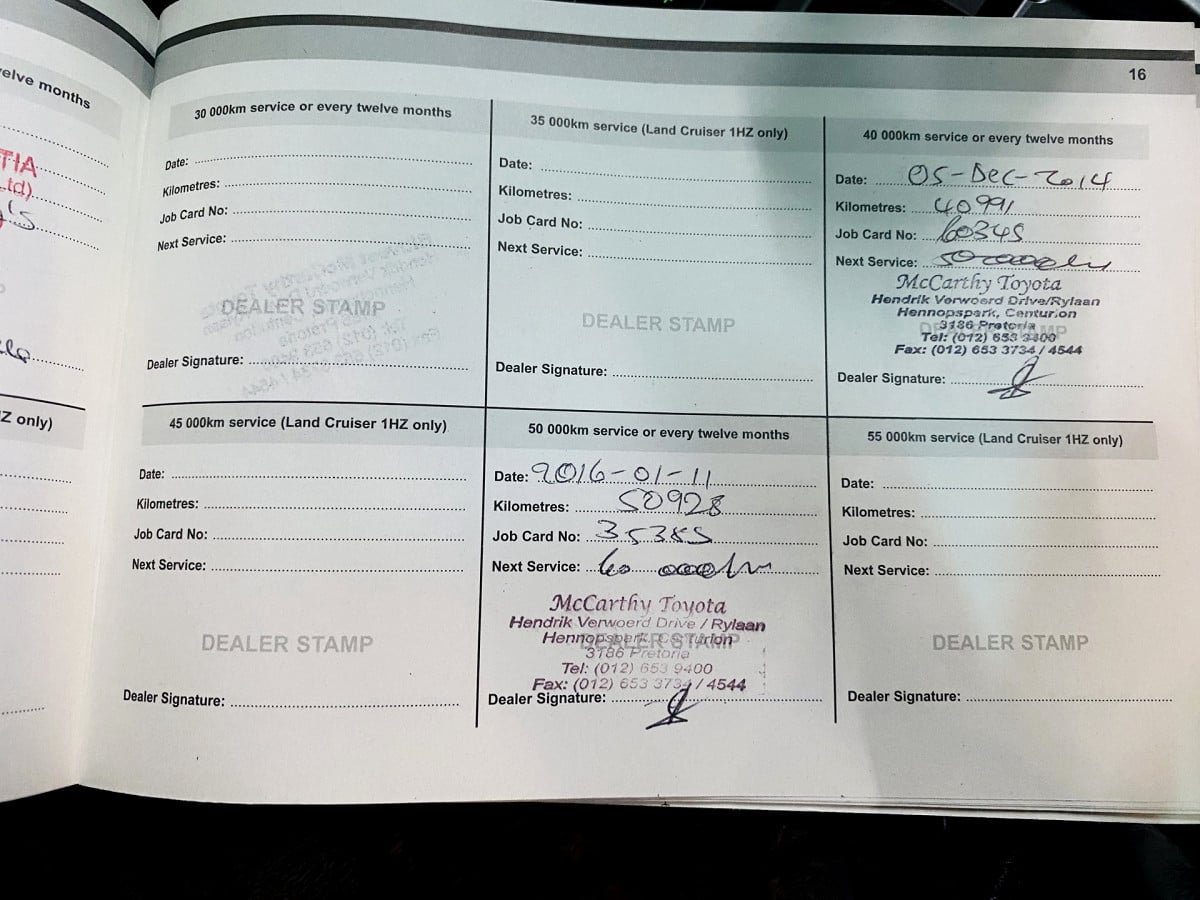 elve months
TIA
Ltd)
Z only)
16
30 000km service or every twelve months
Date:
Kilometres:
Job Card No:
Next Service:
DEALER STAMP
Dealer Signature:
35 000km service (Land Cruiser 1HZ only)
Date:
Kilometres:
Job Card No:
Next Service:
DEALER STAMP
Dealer Signature:
40 000km service or every twelve months
Date: 05-Dec-2014
Kilometres: 40991
Job Card No: 60345
Next Service: 50 000km
McCarthy Toyota
Hendrik Verwoerd Drive/Rylaan
Hennopspark, Centurion
3186 Pretoria
Tel: (012) 653 9400
Fax: (012) 653 3734 / 4544
Dealer Signature:
45 000km service (Land Cruiser 1HZ only)
Date:
Kilometres:
Job Card No:
Next Service:
DEALER STAMP
Dealer Signature:
50 000km service or every twelve months
Date: 2016-01-11
Kilometres: 50928
Job Card No: 35385
Next Service: 60 000km
McCarthy Toyota
Hendrik Verwoerd Drive / Rylaan
Hennopspark, Centurion
DEALER STAMP
3186 Pretoria
Tel: (012) 653 9400
Fax: (012) 653 3734 / 4544
Dealer Signature:
55 000km service (Land Cruiser 1HZ only)
Date:
Kilometres:
Job Card No:
Next Service:
DEALER STAMP
Dealer Signature: